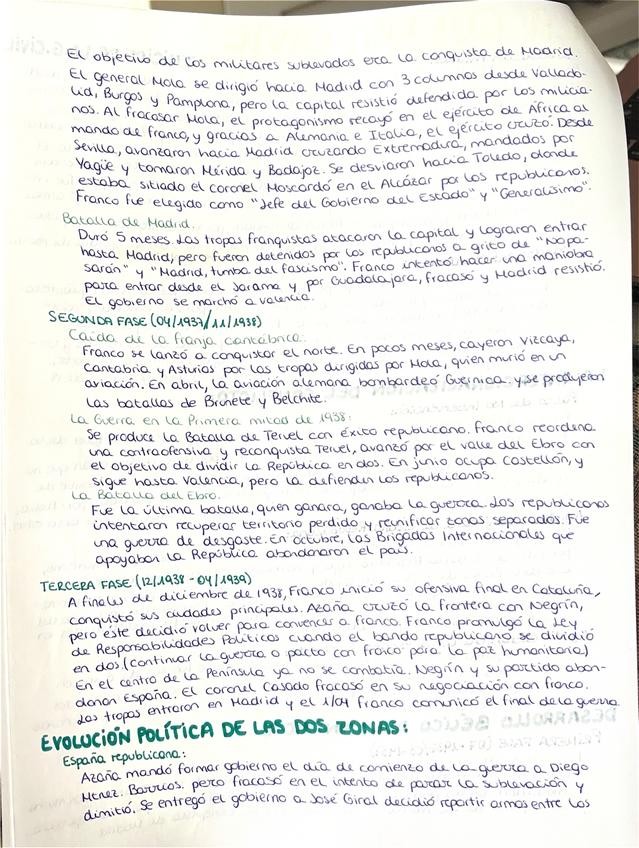 El objetivo de los militares sublevados era la conquista de Madrid.
El general Mola se dirigió hacia Madrid con 3 columnas desde Vallado-
lid, Burgos y Pamplona, pero la capital resistió defendida por los milicia-
nos. Al fracasar Mola, el protagonismo recayó en el ejército de África al
mando de franco, y gracias a Alemania e Italia, el ejército cruzó. Desde
Sevilla, avanzaron hacia Madrid cruzando Extremadura, mandados por
Yagüe y tomaron Mérida y Badajoz. Se desviaron hacia Toledo, donde
estaba sitiado el coronel Moscardó en el Alcázar por los republicanos.
Franco fue elegido como "Jefe del Gobierno del Estado" y "Generalísimo".
Batalla de Madrid.
Duró 5 meses. Las tropas franquistas atacaron la capital y lograron entrar
hasta Madrid, pero fueron detenidos por los republicanos a grito de "No pa-
sarán" y "Madrid, tumba del fascismo". Franco intentó hacer una maniobra
para entrar desde el Jarama y por Guadalajara, fracasó y Madrid resistió.
El gobierno se marchó a Valencia.
SEGUNDA FASE (04/1937/11/1938)
Caída de la franja cantábrica:
Franco se lanzó a conquistar el norte. En pocos meses, cayeron Vizcaya,
Cantabria y Asturias por las tropas dirigidas por Mola, quien murió en un
aviación. En abril, la aviación alemana bombardeó Guernica y se produjeron
las batallas de Brunete y Belchite.
La Guerra en la Primera mitad de 1938:
Se produce la Batalla de Teruel con éxito republicano. Franco reordena
una contraofensiva y reconquista Teruel, avanzó por el valle del Ebro con
el objetivo de dividir la República en dos. En junio ocupa Castellón, y
sigue hasta Valencia, pero la defienden los republicanos.
La Batalla del Ebro.
Fue la última batalla, quien ganara, ganaba la guerra. Los republicanos
intentaron recuperar territorio perdido y reunificar zonas separadas. Fue
una guerra de desgaste. En octubre, las Brigadas Internacionales que
apoyaban la República abandonaron el país.
TERCERA FASE (12/1938 - 04/1939)
A finales de diciembre de 1938, Franco inició su ofensiva final en Cataluña,
conquistó sus ciudades principales. Azaña cruzó la frontera con Negrín,
pero éste decidió volver para convencer a franco. Franco promulgó la Ley
de Responsabilidades Políticas cuando el bando republicano se dividió
en dos (continuar la guerra o pacto con franco para la paz humanitaria)
En el centro de la Península ya no se combatía. Negrín y su partido aban-
donan España. El coronel Casado fracasó en su negociación con franco.
Las tropas entraron en Madrid y el 1/04 franco comunicó el final de la guerra
EVOLUCIÓN POLÍTICA DE LAS DOS ZONAS:
España republicana:
Azaña mandó formar gobierno el día de comienzo de la guerra a Diego
Mtnez. Barrios, pero fracasó en el intento de parar la sublevación y
dimitió. Se entregó el gobierno a José Giral decidió repartir armas entre los